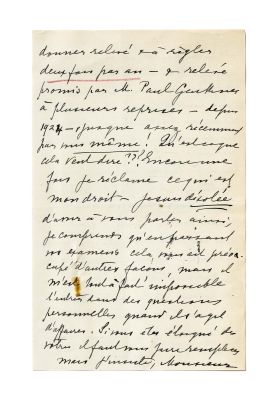 donner relevé & à règler
deux fois par an – & relevé
promis par M. Paul
à plusieurs reprises – depuis
192 – jusque assez récemment
par vous même. Qu'est ce que
cela veut dire ??! Encore une
fois je réclame ce qui est
mon droit – je suis désolée
d'avoir à vous parler ainsi,
je comprends qu'en passant
vos examens cela vous ait préoc-
cupé d'autres facons, mais il
m'est tout à fait impossible
d'entrer dans des questions
personnelles quand il s'agit
d'affaires. Si vous êtes éloigné de
votre il faut vous faire remplacer
mais j'insiste, Monsieur